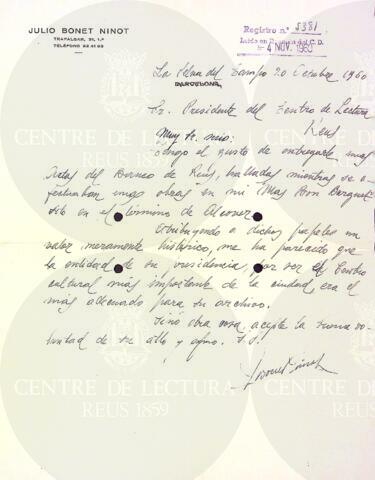 JULIO BONET NINOT
TRAFALGAR, 31, 1.º
TELÉFONO 22 41 93
Registro n.º 5381
Leído en Reunión del C.D.
4 NOV. 1960
La Selva del Campo 20 Octubre 1960
BARCELONA,
Sr. Presidente del Centro de Lectura
Reus
Muy Sr. mío:
Tengo el gusto de entregarle unas
Actas del Banco de Reus, halladas mientras se e-
fectuaban unas obras en mi Mas Bon Berguet
sito en el término de Alcover.
Atribuyendo a dichos papeles un
valor meramente histórico, me ha parecido que
la entidad de su presidencia, por ser el Centro
cultural más importante de la ciudad, era el
más adecuado para su archivo.
Sin otra cosa, acepte la buena vo-
luntad de su atto y afmo. S.S.
J Bonet Ninot
CENTRE DE LECTURA
REUS 1859